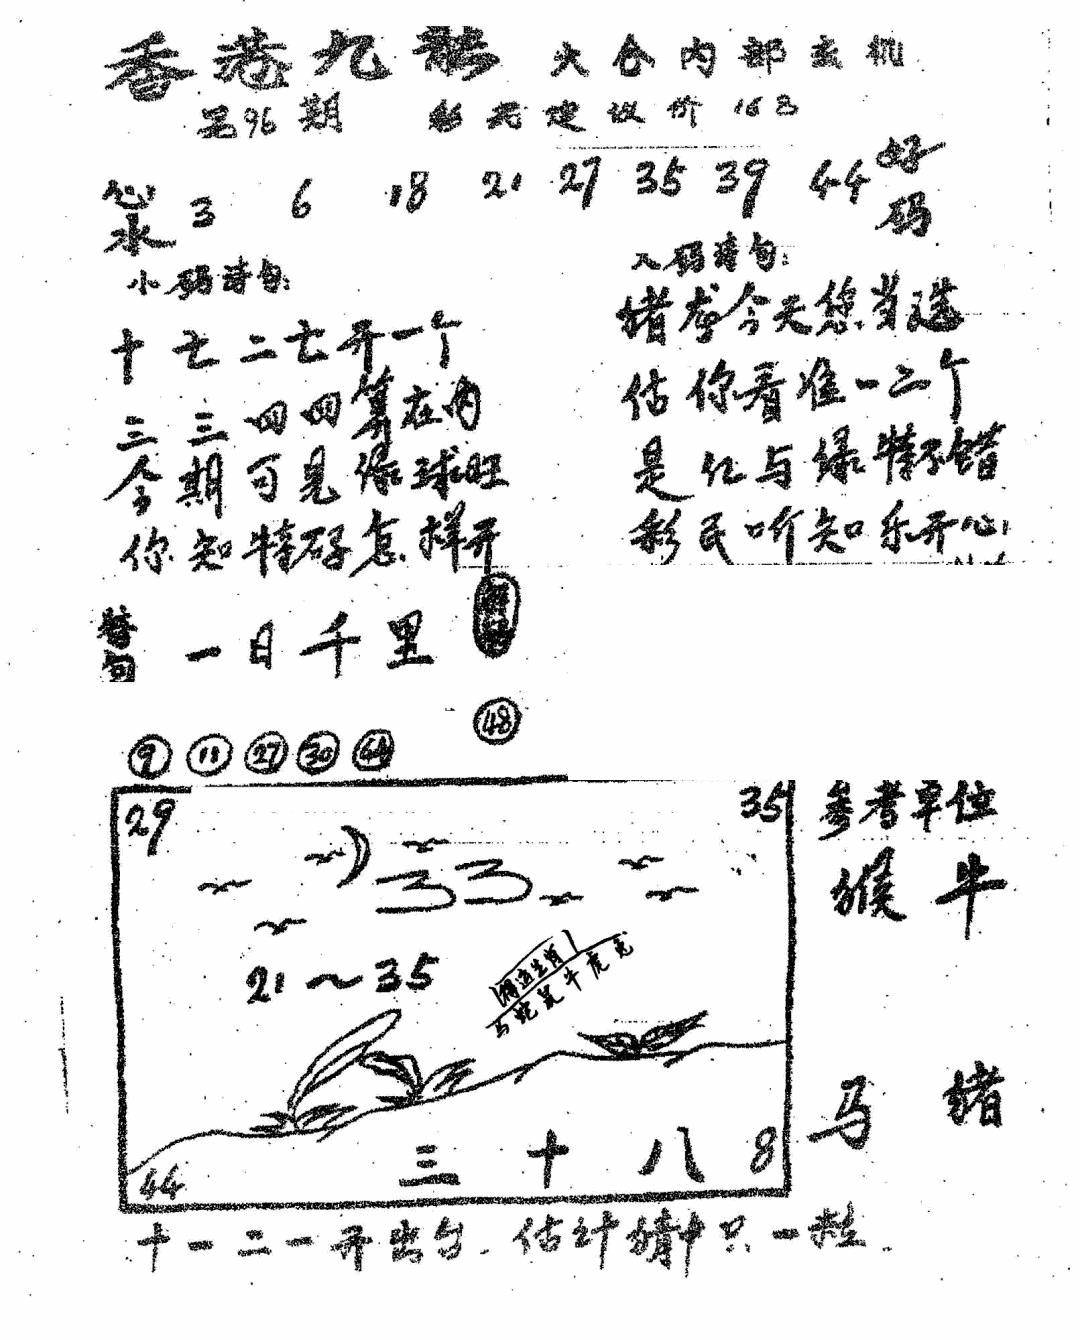 香港九龙 六合内部玄机
另96期 彩为建议价16多
心水 3 6 18 21 27 35 39 44 好码
小码诗句:
十七二七开一个
三三四四算在内
今期可见绿球旺
你知特码怎样开
入码诗句:
猪龙今天您当选
估你看准一二个
是红与绿特不错
彩民听知乐开心
一日千里
48
9 11 27 30 44
29 35
33
21~35
相送生肖
马蛇鼠牛虎兔
44 三十八 8
参考单位
猴牛
马猪
十一二一开出台.估计猜中只一粒.